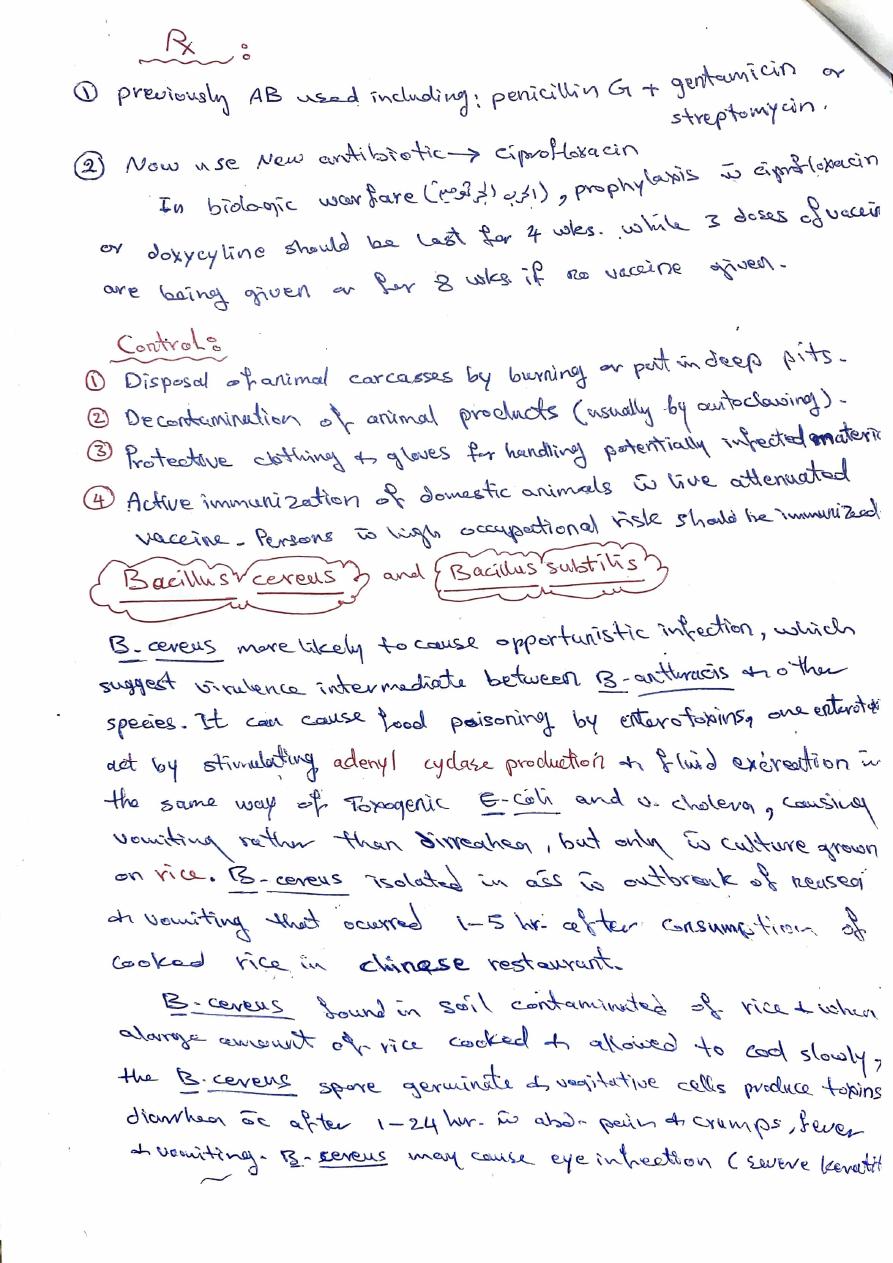 Rx :
① previously AB used including: penicillin G + gentamicin or
streptomycin.
② Now use New antibiotic → ciprofloxacin
In biologic warfare (الحرب الجرثومية), prophylaxis w̄ ciprofloxacin
or doxycyline should be last for 4 wks. while 3 doses of vaccin
are being given or for 8 wks if no vaccine given.
Control:
① Disposal of animal carcasses by burning or put in deep pits.
② Decontamination of animal products (usually by autoclaving).
③ Protective clothing & gloves for handling potentially infected materi
④ Active immunization of domestic animals w̄ live attenuated
vaccine. Persons w̄ high occupational risk should be immunized
Bacillus cereus and Bacillus subtilis
B-cereus more likely to cause opportunistic infection, which
suggest virulence intermediate between B-anthracis & other
species. It can cause food poisoning by enterotoxins, one enterot
act by stimulating adenyl cyclase production & fluid excreation in
the same way of Toxogenic E-coli and v. cholera, causing
vomiting rather than dirreahea, but only w̄ culture grown
on rice. B-cereus isolated in ass w̄ outbreak of neusea
& vomiting that ocurred 1-5 hr. after consumption of
cooked rice in chinese restaurant.
B-cereus found in soil contaminated of rice & when
alarge amount of rice cooked & allowed to cool slowly,
the B.cereus spore germinate & vegitative cells produce toxins
diarrhea oc after 1-24 hr. w̄ abd. pain & crumps, fever
& vomiting. B-sereus may cause eye infection (severe keratit